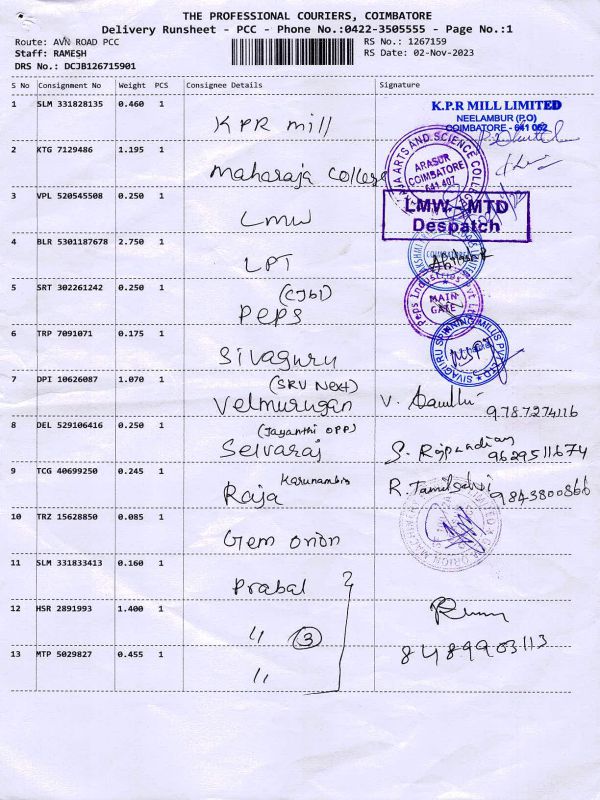 THE PROFESSIONAL COURIERS, COIMBATORE
Delivery Runsheet - PCC - Phone No.:0422-3505555 - Page No.:1
Route: AVN ROAD PCC
RS No.: 1267159
Staff: RAMESH
RS Date: 02-Nov-2023
DRS No.: DCJB126715901
S No Consignment No Weight PCS Consignee Details Signature
1 SLM 331828135 0.460 1 KPR mill
K.P.R MILL LIMITED
NEELAMBUR (P.O)
COIMBATORE - 641 062
2 KTG 7129486 1.195 1 Maharaja College
ARTS AND SCIENCE COLLEGE
ARASUR
COIMBATORE
641 407
3 VPL 520545508 0.250 1 LMW
LMW - MTD
Despatch
4 BLR 5301187678 2.750 1 LPT
COIMBATORE
5 SRT 302261242 0.250 1 (CJB1)
PEPS
Peps Industries Pvt Ltd
MAIN
GATE
6 TRP 7091071 0.175 1 Sivaguru
SIVAGURU SPINNING MILLS PVT LTD
7 DPI 10626087 1.070 1 (SRV Next)
Velmurugan V. 9787274116
8 DEL 529106416 0.250 1 (Jayanthi OPP)
Selvaraj S. 9629511674
9 TCG 40699250 0.245 1 Raja Karunambis R. Tamilselvi 9843800866
10 TRZ 15628850 0.085 1 Gem orion
11 SLM 331833413 0.160 1 Prabal
12 HSR 2891993 1.400 1 " 3
8489903113
13 MTP 5029827 0.455 1 "